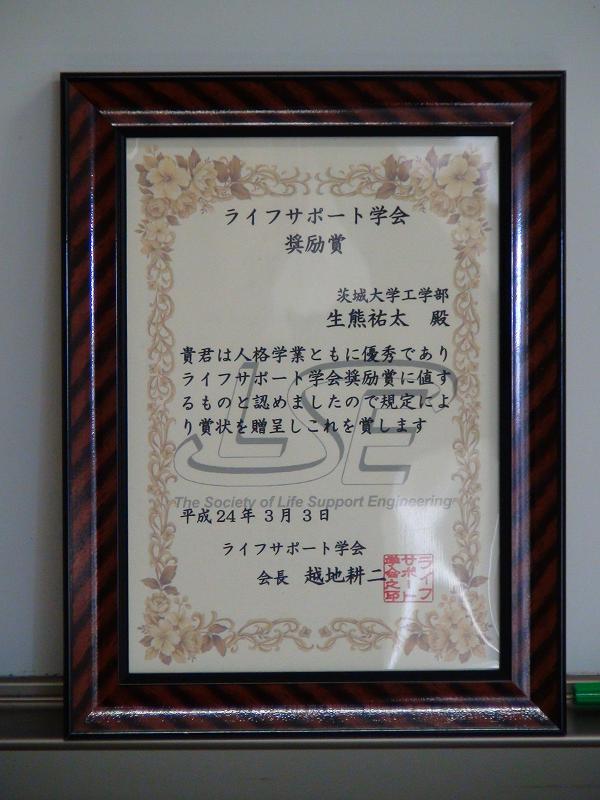 ライフサポート学会
奨励賞
茨城大学工学部
生熊祐太 殿
貴君は人格学業ともに優秀であり
ライフサポート学会奨励賞に値す
るものと認めましたので規定によ
り賞状を贈呈しこれを賞します
LSE
The Society of Life Support Engineering
平成24年3月3日
ライフサポート学会
会長 越地耕二
ライフ
サポート
学会之印